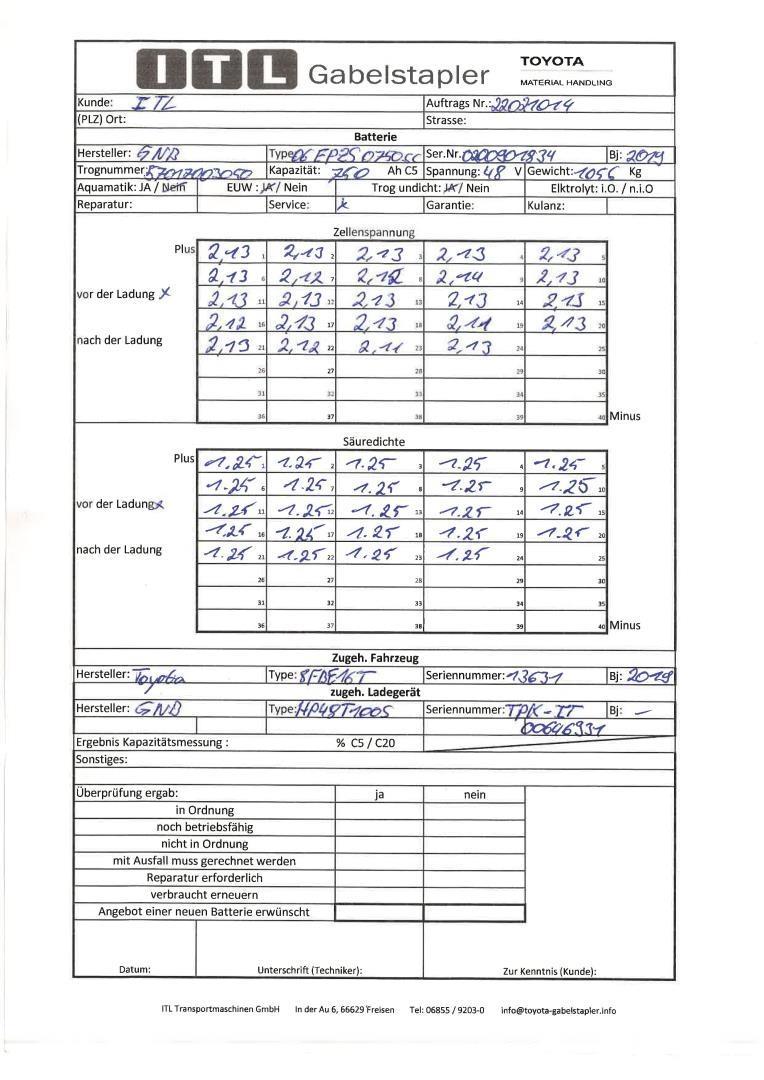 ITL Gabelstapler TOYOTA
MATERIAL HANDLING
Kunde: ITL Auftrags Nr.: 22021014
(PLZ) Ort: Strasse:
Batterie
Hersteller: GNB Type: 06 EPZS 0750 SC Ser.Nr. 0200901834 Bj: 2019
Trognummer: 57017003050 Kapazität: 750 Ah C5 Spannung: 48 V Gewicht: 1056 Kg
Aquamatik: JA / Nein EUW : JA/ Nein Trog undicht: JA/ Nein Elktrolyt: i.O. / n.i.O
Reparatur: Service: x Garantie: Kulanz:
Zellenspannung
Plus 2,13 1 2,13 2 2,13 3 2,13 4 2,13 5
2,13 6 2,12 7 2,12 8 2,14 9 2,13 10
vor der Ladung x 2,13 11 2,13 12 2,13 13 2,13 14 2,13 15
2,12 16 2,13 17 2,13 18 2,11 19 2,13 20
nach der Ladung 2,13 21 2,12 22 2,11 23 2,13 24 25
26 27 28 29 30
31 32 33 34 35
36 37 38 39 40 Minus
Säuredichte
Plus 1.25 1 1.25 2 1.25 3 1.25 4 1.25 5
1.25 6 1.25 7 1.25 8 1.25 9 1.25 10
vor der Ladung x 1.25 11 1.25 12 1.25 13 1.25 14 1.25 15
1.25 16 1.25 17 1.25 18 1.25 19 1.25 20
nach der Ladung 1.25 21 1.25 22 1.25 23 1.25 24 25
26 27 28 29 30
31 32 33 34 35
36 37 38 39 40 Minus
Zugeh. Fahrzeug
Hersteller: Toyota Type: 8FBE16T Seriennummer: 13631 Bj: 2019
zugeh. Ladegerät
Hersteller: GNB Type: HP48T100S Seriennummer: TPK-IT Bj: —
00646931
Ergebnis Kapazitätsmessung : % C5 / C20
Sonstiges:
Überprüfung ergab: ja nein
in Ordnung
noch betriebsfähig
nicht in Ordnung
mit Ausfall muss gerechnet werden
Reparatur erforderlich
verbraucht erneuern
Angebot einer neuen Batterie erwünscht
Datum: Unterschrift (Techniker): Zur Kenntnis (Kunde):
ITL Transportmaschinen GmbH In der Au 6, 66629 Freisen Tel: 06855 / 9203-0 info@toyota-gabelstapler.info